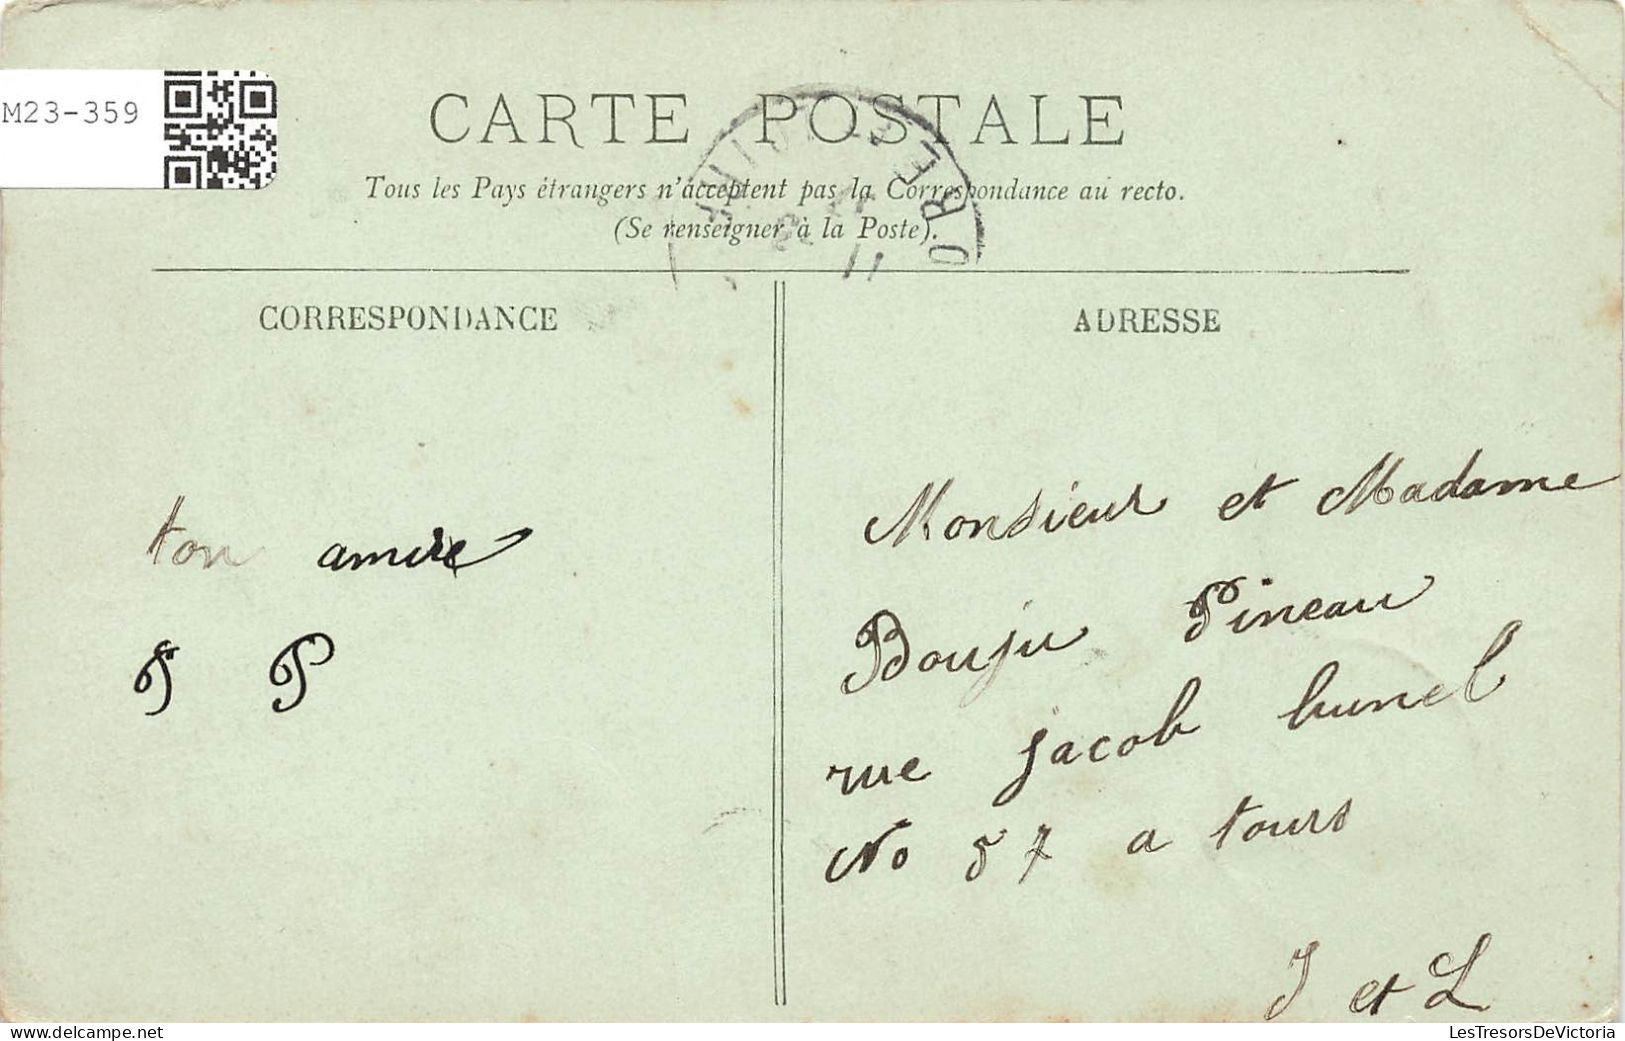 M23-359
CARTE POSTALE
Tous les Pays étrangers n'acceptent pas la Correspondance au recto.
(Se renseigner à la Poste).
CORRESPONDANCE
ton amie
P
ADRESSE
Monsieur et Madame
Bouju Pineau
rue jacob bunel
No 57 a tours
I et L
LesTresorsDeVictoria